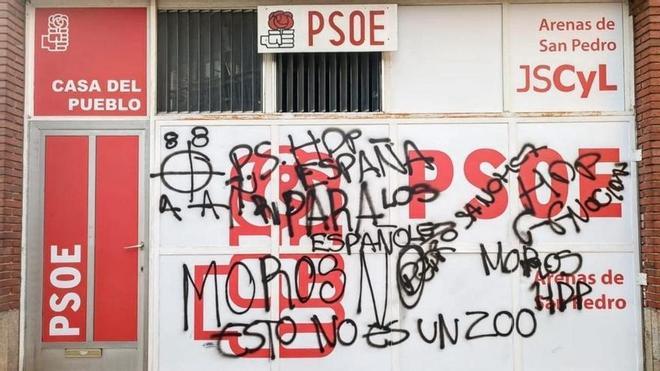 PSOE
CASA DEL
PUEBLO
PSOE
Arenas de
San Pedro
JSCyL
PSOE
8 8
P.S. HPP
ESPAÑA
PARA LOS
ESPAÑOLES
MOROS NO
ESTO NO ES UN ZOO
PSOE
HPP
MOROS
HPP
Arenas de
San Pedro